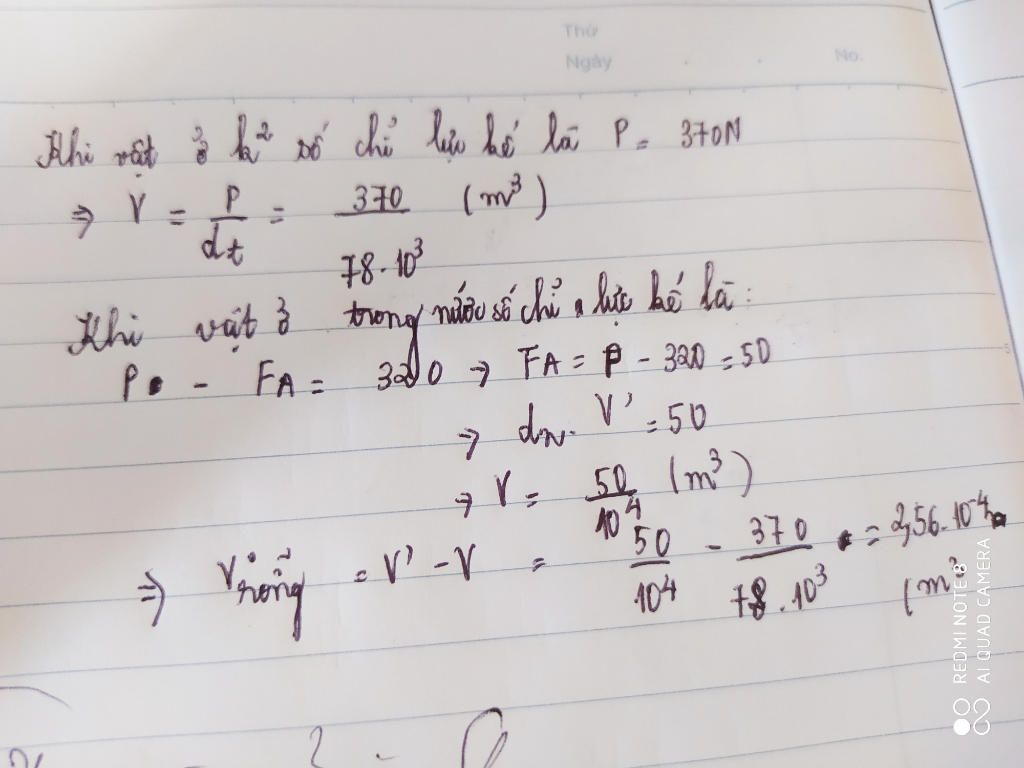 Thứ
Ngày No.
Khi vật ở k² số chỉ lực kế là P = 370N
⇒ V = P/dt = 370/78.10³ (m³)
Khi vật ở trong nước số chỉ lực kế là:
P - FA = 320 → FA = P - 320 = 50
→ dn. V' = 50
→ V = 50/10⁴ (m³)
⇒ Vrỗng = V' - V = 50/10⁴ - 370/78.10³ = 2,56.10⁻⁴
(m³
REDMI NOTE 8
AI QUAD CAMERA